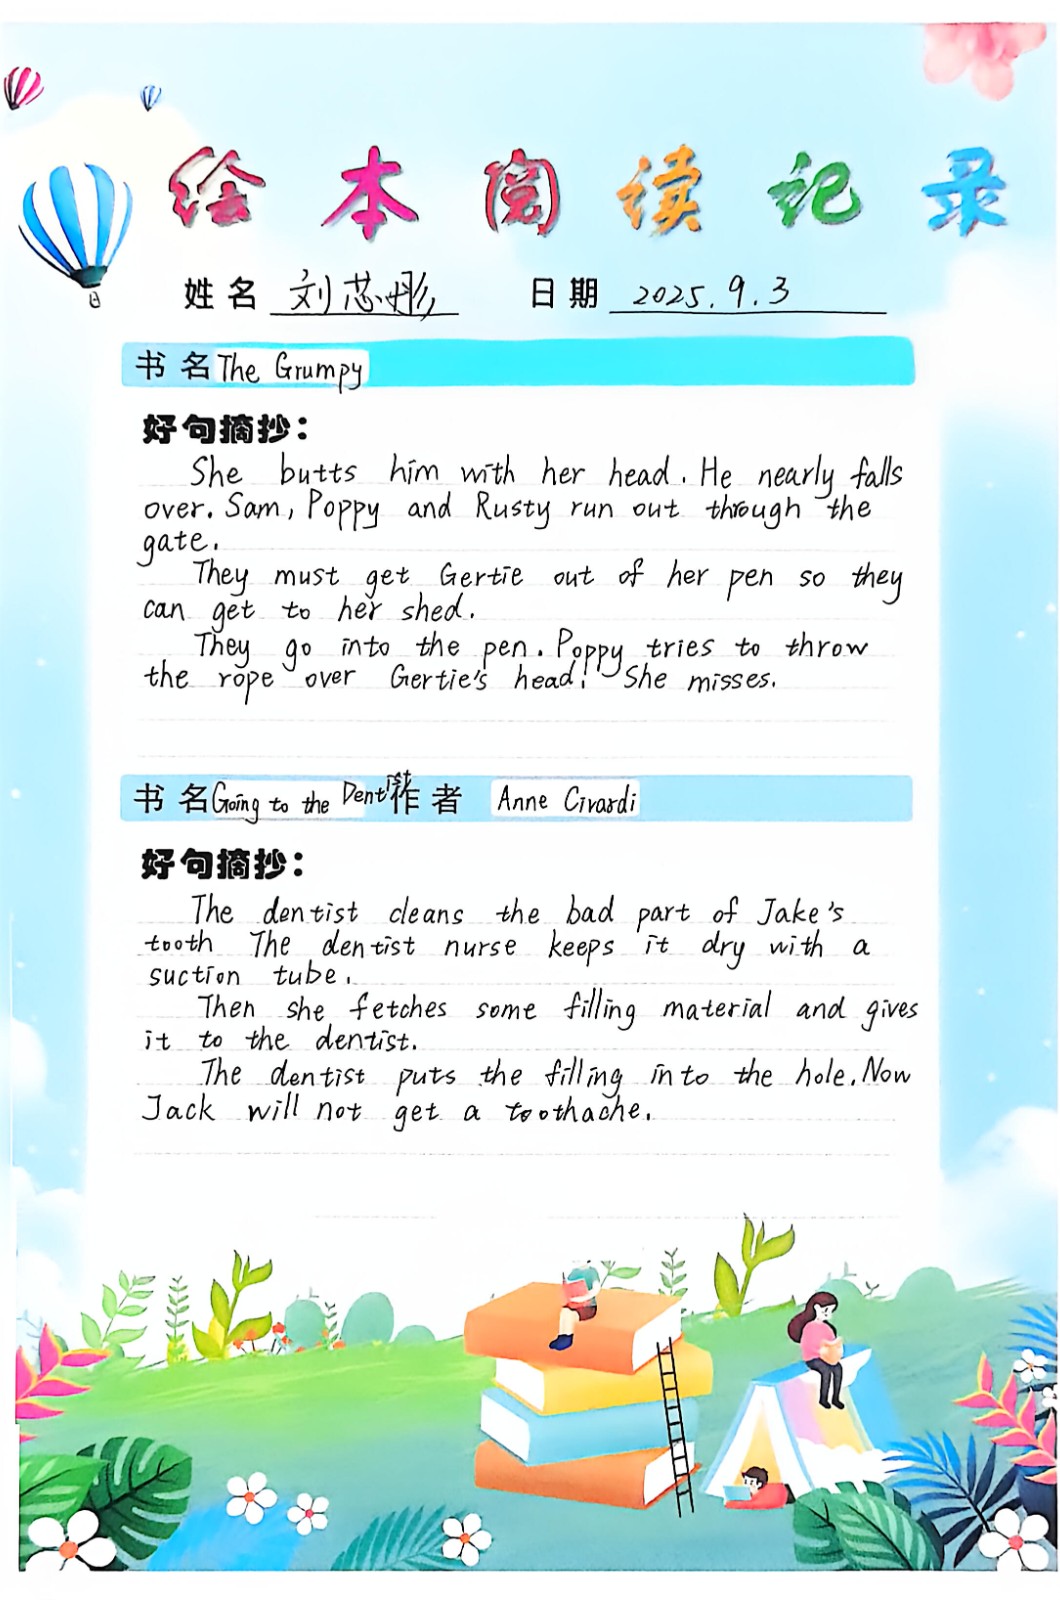 绘本阅读记录
姓名 刘芯彤 日期 2025.9.3
书名 The Grumpy
好句摘抄：
She butts him with her head. He nearly falls
over. Sam, Poppy and Rusty run out through the
gate.
They must get Gertie out of her pen so they
can get to her shed.
They go into the pen. Poppy tries to throw
the rope over Gertie's head! She misses.
书名 Going to the Dentist 作者 Anne Civardi
好句摘抄：
The dentist cleans the bad part of Jake's
tooth The dentist nurse keeps it dry with a
suction tube.
Then she fetches some filling material and gives
it to the dentist.
The dentist puts the filling into the hole. Now
Jack will not get a toothache.